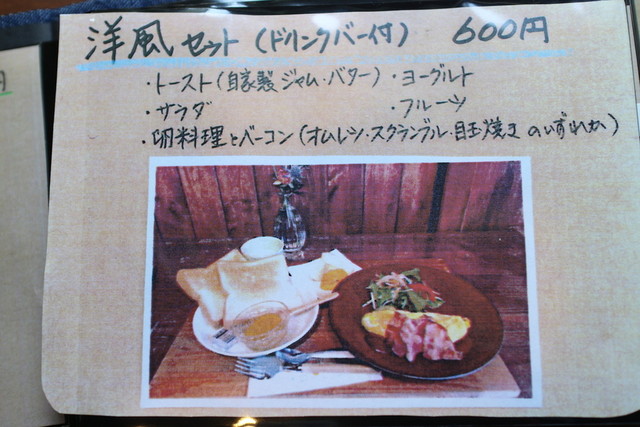 洋風セット(ドリンクバー付) 600円
・トースト(自家製ジャム・バター) ・ヨーグルト
・サラダ ・フルーツ
・卵料理とベーコン(オムレツ・スクランブル・目玉焼きのいずれか)
円